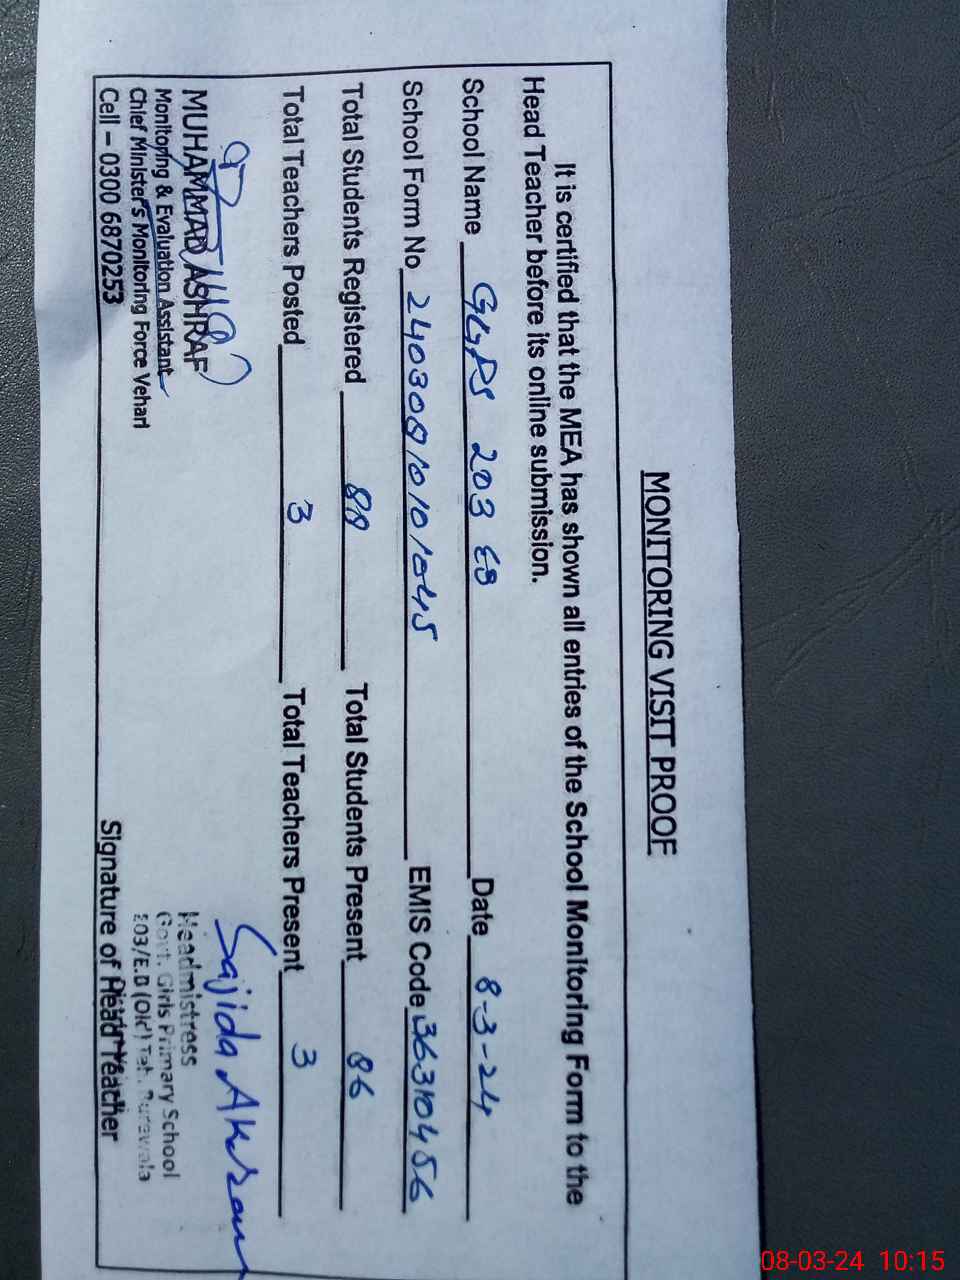 MONITORING VISIT PROOF
It is certified that the MEA has shown all entries of the School Monitoring Form to the
Head Teacher before its online submission.
School Name GGPS 203 EB Date 8-3-24
School Form No 24030810101045 EMIS Code 36310456
Total Students Registered 88 Total Students Present 86
Total Teachers Posted 3 Total Teachers Present 3
Sajida Akram
MUHAMMAD ASHRAF
Monitoring & Evaluation Assistant
Chief Minister's Monitoring Force Vehari
Cell – 0300 6870253
Headmistress
Govt. Girls Primary School
203/E.B (Old) Teh. Burewala
Signature of Head Teacher
08-03-24 10:15